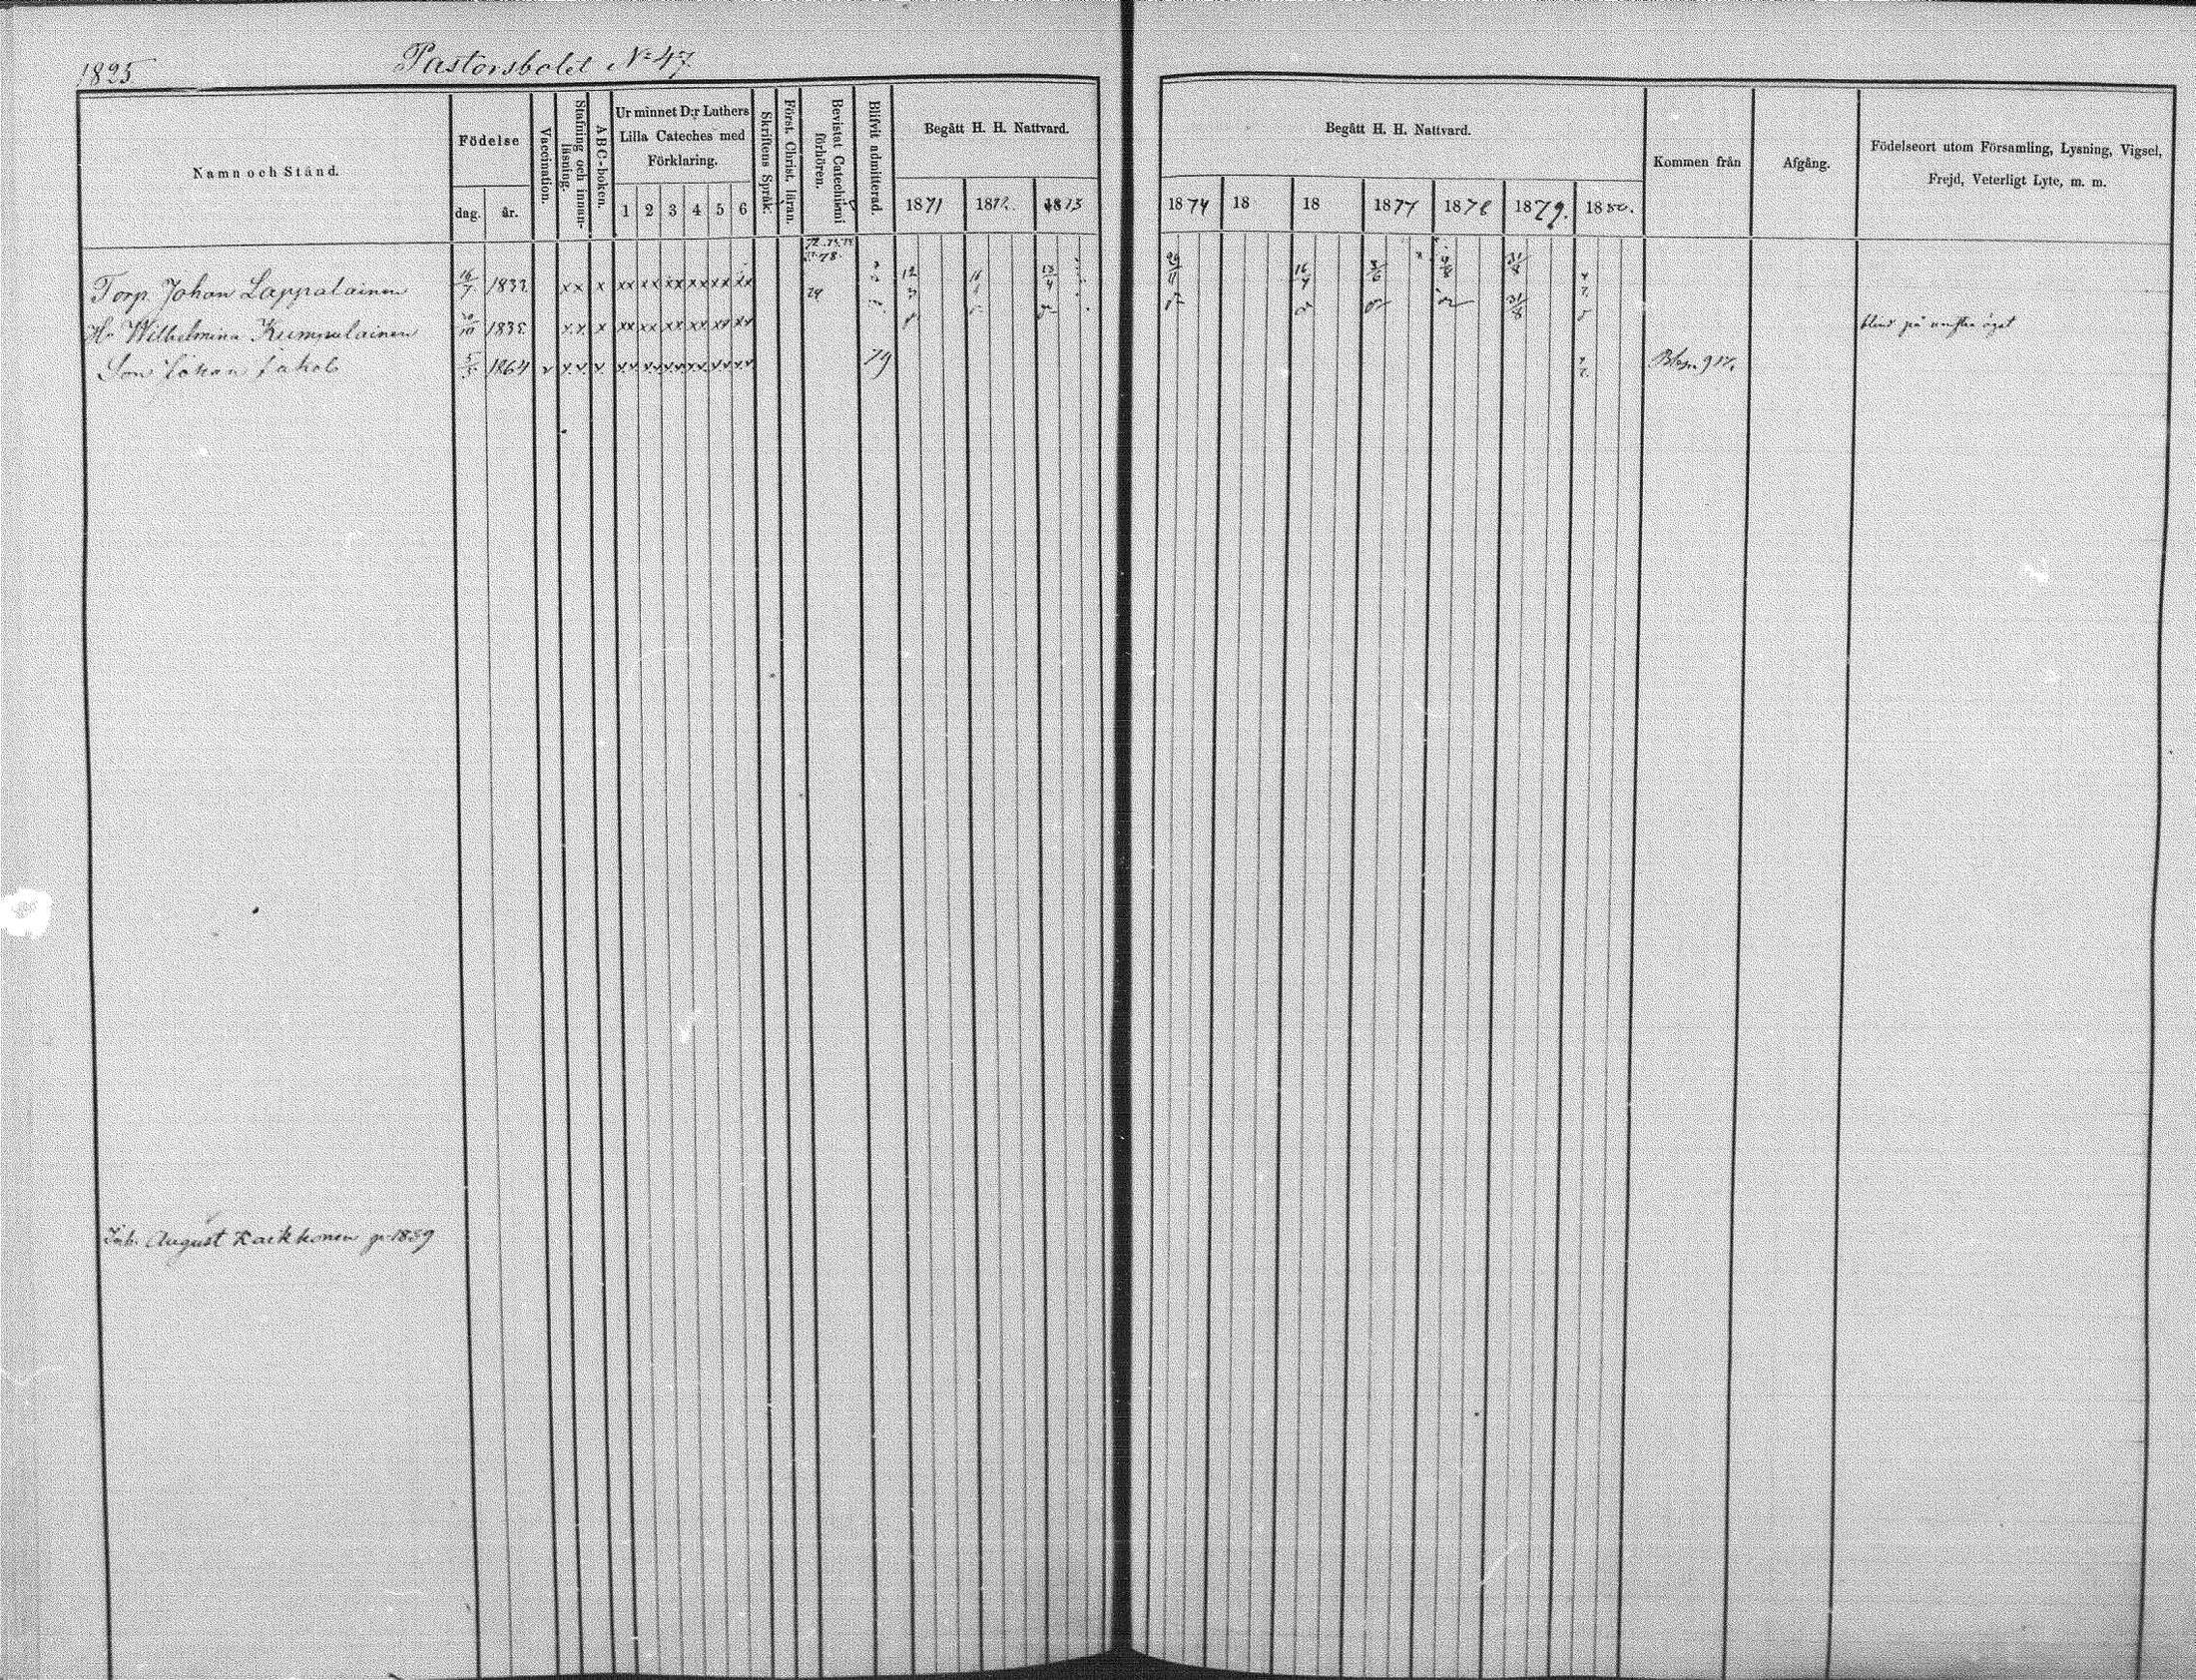 1825
Pastorsbolet No 47
Namn och Stånd.
Födelse
dag. år.
Vaccination.
Stafning och innan-läsning.
ABC-boken.
Ur minnet D:r Luthers
Lilla Cateches med
Förklaring.
1 2 3 4 5 6
Skriftens Språk.
Först. Christ. läran.
Bevistat Catechismi förhören.
Blifvit admitterad.
Begått H. H. Nattvard.
1871 1872 1873
Begått H. H. Nattvard.
1874 18 18 1877 1878 1879. 1880.
Kommen från
Afgång.
Födelseort utom Församling, Lysning, Vigsel,
Frejd, Veterligt Lyte, m. m.
Torp. Johan Lappalainen 16/7 1832 xx x xx xx xx xx xx xx 12/3 13/4 29/11 16/4 3/6 4/8 31/8
H. Wilhelmina Kumpulainen 1835 xx x xx xx xx xx xx xx 31/8 blind på
Son Johan Jakob 1864 v xx x xx xx xx xx xx xx 79
Inh. August Kaikkonen p. 1859